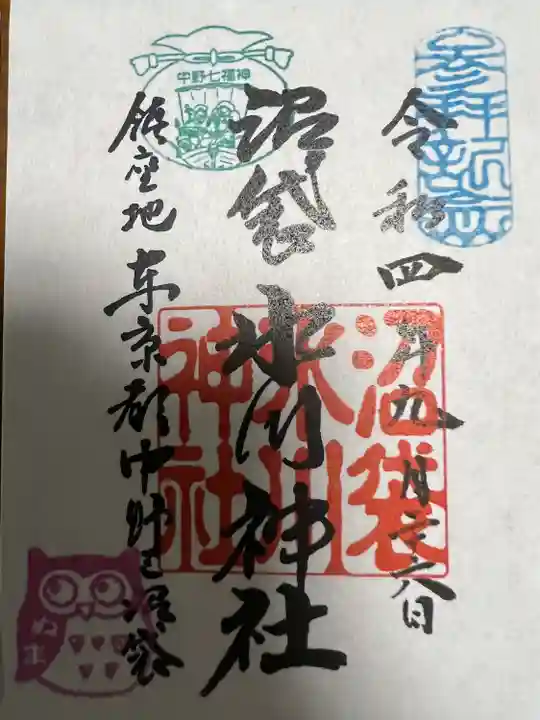 参拝記念
令和四年九月二十六日
沼袋氷川神社
沼袋
氷川
神社
中野七福神
鎮座地 東京都中野区沼袋
ぬま